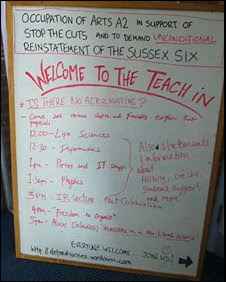 OCCUPATION OF ARTS A2 IN SUPPORT OF
STOP THE CUTS AND TO DEMAND UNCONDITIONAL
REINSTATEMENT OF THE SUSSEX SIX
WELCOME TO THE TEACH IN
* IS THERE NO ALTERNATIVE?
- Come see various depts and Faculty explain their
proposals
12:00 - Life Sciences
12:30 - Informatics
1pm - Profs and IT
1:30pm - Physics
3pm. IR lecture: Post Colonialism
4pm - "Freedom to Organise"
5pm - Alex Callinicos; Universities in a Neo-Liberal World
Also statements
& information
about
History, creche,
Student Support
and more
EVERYONE WELCOME... JOIN US!
http://defendsussex.wordpress.com